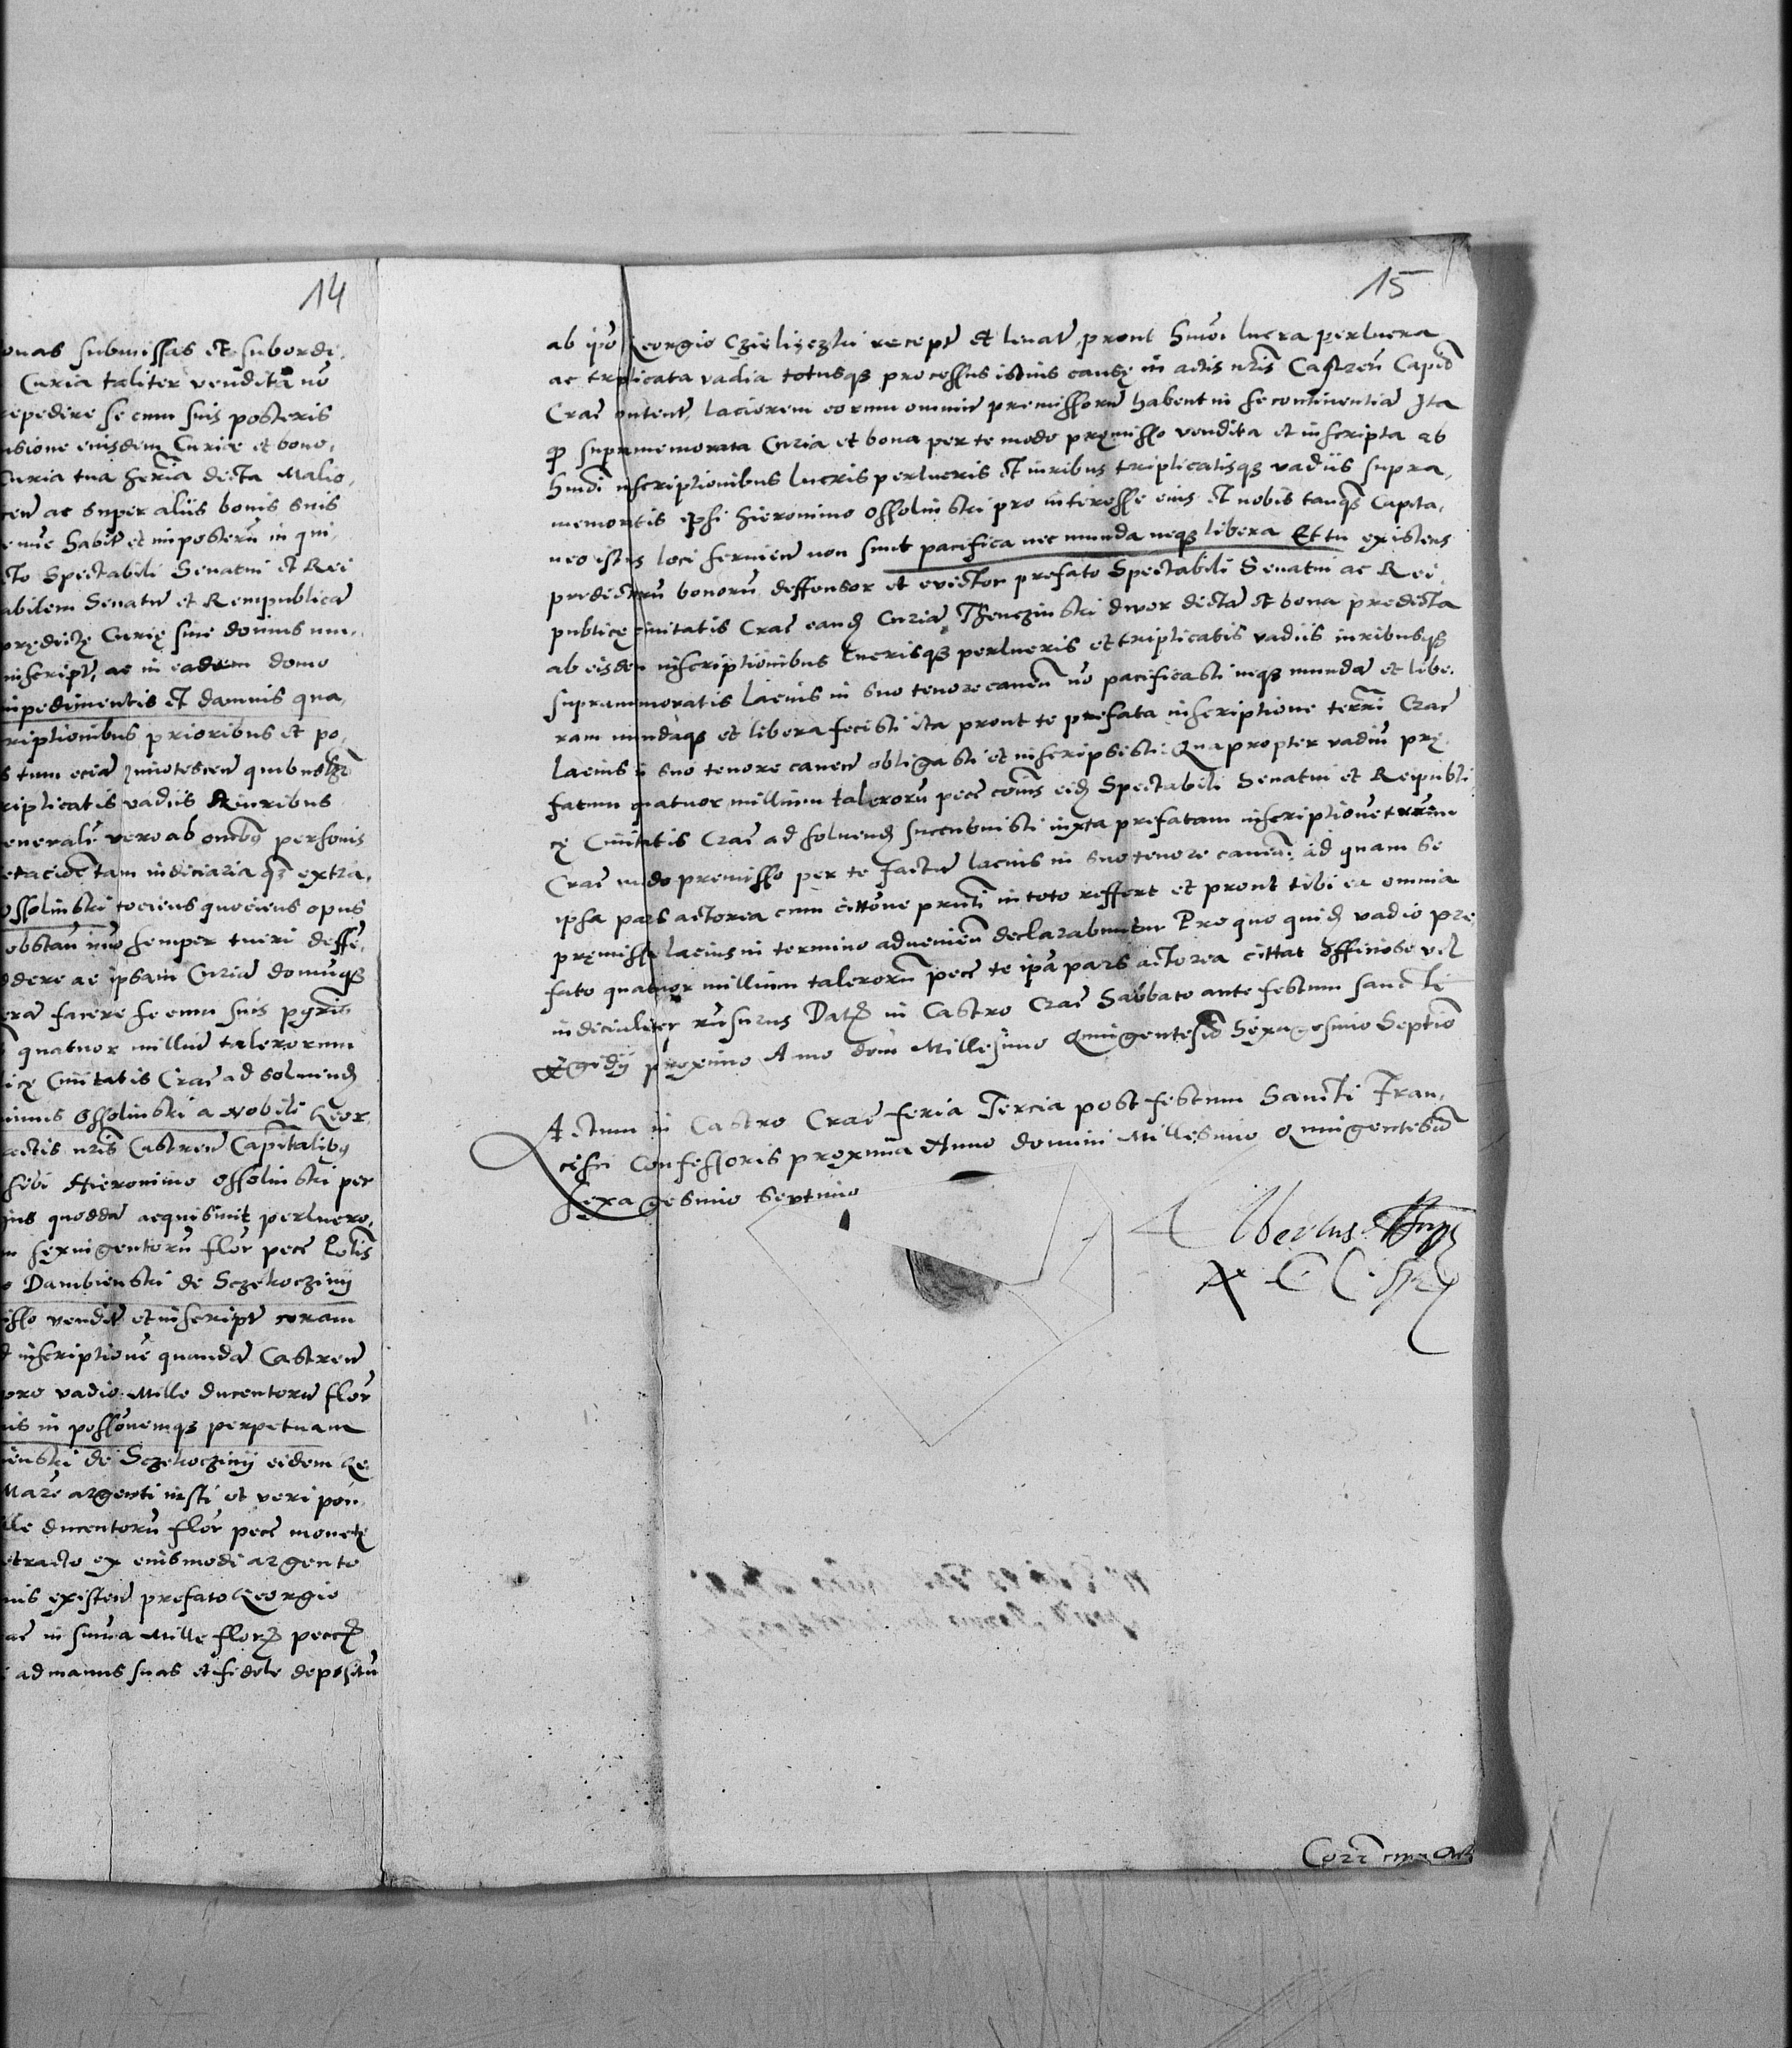 14
onas submissas et subordi
Curia taliter vendita nō
repedire se cum suis posteris
nsione eiusdem Curiæ et bono,
Curia tua dicta Malio
cen̄ ac super aliis bonis suis
habit̄ et imposterū in qui
cto Spectabili Senatui et Rei
abilem Senatū et Rempublicā
prędictę Curię sive domus
inscript̄ ac in eadem domo
mpedimentis et damnis qua,
riptionibus prioribus et po,
s tum eciā quibus
riplicatis vadiis iuribus
eneralr̄ vero ab omībus personis
tam indiciaria qȝ extra,
Ossolinski tociens quociens opus
obstan̄ imo semper tueri deffē,
ddere ac ipsam Curiā domūqȝ
erā facere se cum suis
quatuor milliū talerorum
icę Civitatis Crac̄ ad solvend̄
nimus Ossolinski a Nobili Geor
actis nr̄is Castren̄ Capītalibȝ
sibi Hieronimo Ossolinski per
ius quoddā acquisivit perlucro,
m sexingentorū flor̄ pec̄ Polīs
o Dambienski de Sczekocziny
isso vendit̄ et inscript̄ coram
d inscriptionē quandā Castren̄
pro vadio Mille ducentorū flor̄
nis in possōnemqȝ perpetuam
ienski de Sczekocziny eidem Ge
Marc̄ argenti iusti et veri pon
ille ducentorū flor̄ pec̄ monetę
etracto ex eiusmodi argento
nis existen̄ prefato Georgio
ac in sum̄a Mille flor̄ pec̄
ad manus suas et fidele depositū
15
ab ip̄o Georgio Czieliczki recept̄ et levat̄ prout hm̄oi lucra perlucra
ac triplicata vadia totusqȝ processus istius causę in actis nr̄is Castren̄ Capit̄
Crac̄ content̄ laciorem eorum omniū premissorū habent in se continentiā Ita
qȝ supramemorata Curia et bona per te modo pręmisso vendita et inscripta ab
hm̄oi inscriptionibus lucris perlucris et iuribus triplicatisqȝ vadiis supra,
memoratis ipsi Hieronimo Ossolinski pro interesse eius et nobis tanqȝ Capita,
neo istius loci servien̄ non sunt pacifica nec munda neqȝ libera Et tu existens
predictorū bonorū deffensor et evictor prefato Spectabili Senatui ac Rei
publicę civitatis Crac̄ eand̄ Curiā Thenczinski dwor dictā et bona predicta
ab eisdem inscriptionibus lucrisqȝ perlucris et triplicatis vadiis iuribusqȝ
suprammoratis lacius in suo tenore canen̄ nō pacificasti neqȝ mundā et libe,
ram mundaqȝ et libera fecisti ita prout te prefata inscriptione terrī Crac̄
lacius in suo tenore canen̄ obligasti et inscripsisti Quapropter vadiū prę
fatum quatuor millium talerorū pec̄ com̄s eid̄ Spectabili Senatui et Reipubli
cę Civitatis Crac̄ ad solvend̄ succubuisti iuxta prefatam inscriptionē terrīm
Crac̄ modo premisso per te factū lacius in suo tenore canen̄ ad quam se
ipsa pars actorea cum cittōne prn̄ti in toto reffert et prout tibi ea omnia
pręmissa lacius in termino advenien̄ declarabuntur Pro quo quid̄ vadio pre,
fato quatuor millium talerorū pec̄ te ip̄a pars actorea cittat officiose vel
iudicialiter Dat̄ in Castro Crac̄ Sabbato ante festum sancti
Ægidij proximo Anno dom̄ Millesimo Quingentesīo Sexagesimo Septīo
Actum in Castro Crac̄ feria Tercia post festum Sancti Fran,
cisci Confessoris proxima Anno Domini Millesimo Quingentesīo
sexagesimo septimo